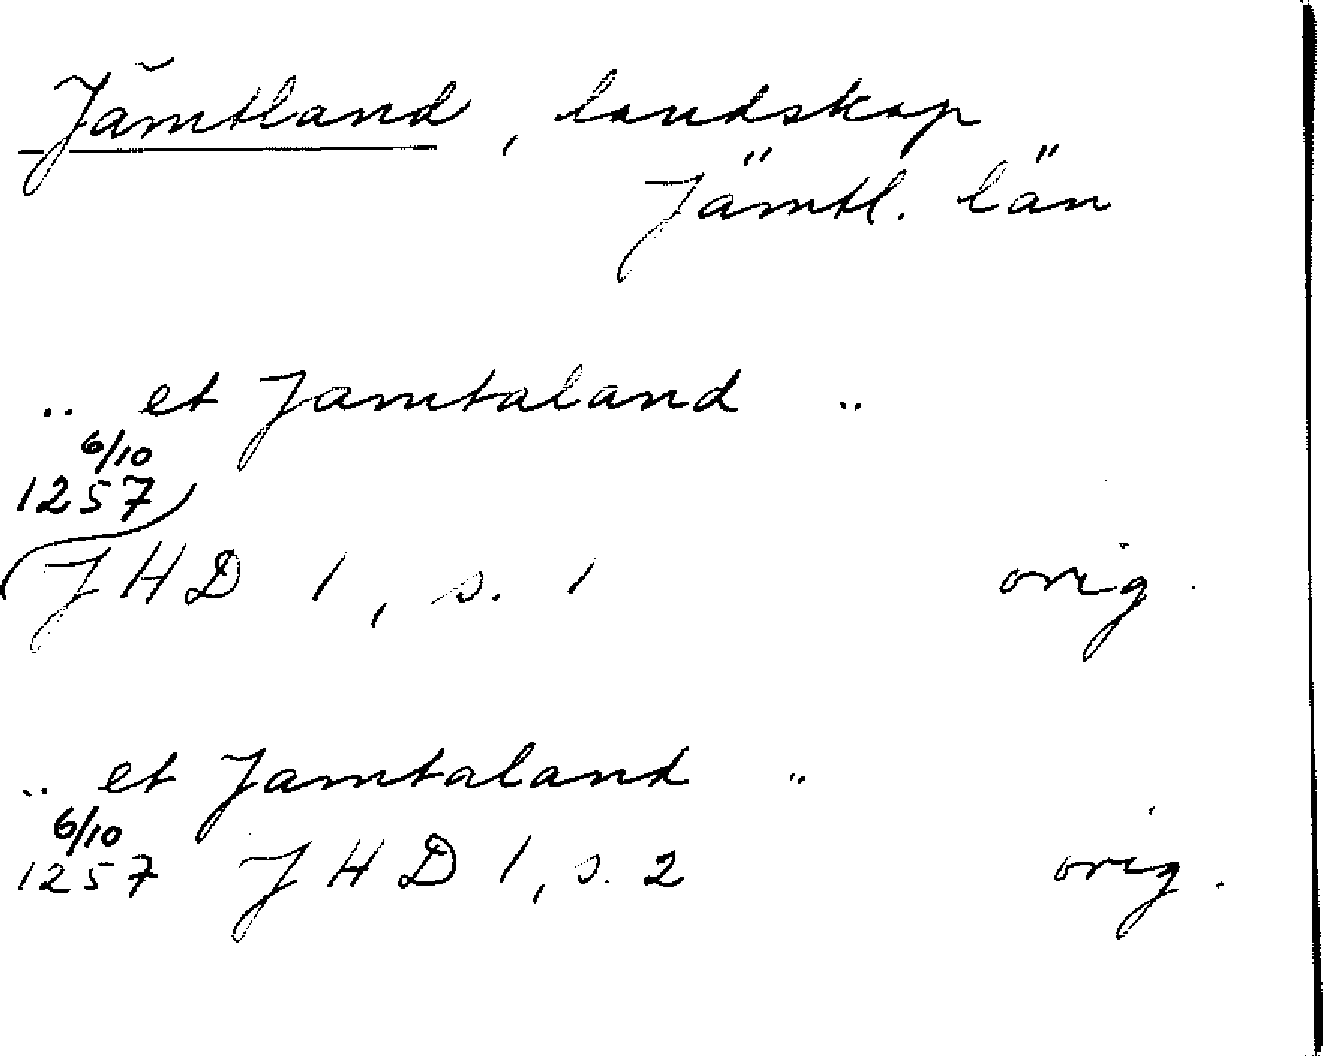 Jämtland, landskap
Jämtl. län
.. et Jamtaland ..
6/10
1257
JHD 1, s. 1 orig.
.. et Jamtaland ..
6/10
1257 JHD 1, s. 2 orig.